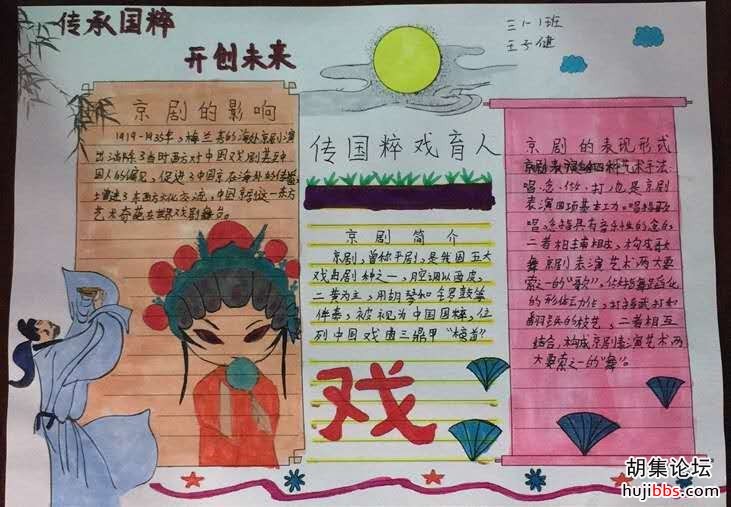 传承国粹
开创未来
三(1)班
王子健
京剧的影响
1919-1935年，梅兰芳的海外京剧演
出消除了当时西方对中国戏剧甚至中
国人的偏见，促进了中国京在海外的传播，
增进了东西方文化交流，中国京剧这一东方
艺术奇葩在世界戏剧舞台。
传国粹戏育人
京剧简介
京剧，曾称平剧，是我国五大
戏曲剧种之一，腔调以西皮、
二黄为主，用胡琴和锣鼓等
伴奏，被视为中国国粹，位
列中国戏曲三鼎甲"榜首"
戏
京剧的表现形式
京剧表演的四种艺术手法：
唱、念、做、打，也是京剧
表演四项基本功。唱指歌
唱，念指具有音乐性的念白，
二者相辅相成，构成歌
舞京剧表演艺术两大要
素之一的"歌"，做指舞蹈化
的形体动作，打指武打和
翻跌的技艺，二者相互
结合，构成京剧表演艺术两
大要素之一的"舞"。
胡集论坛
hujibbs.com